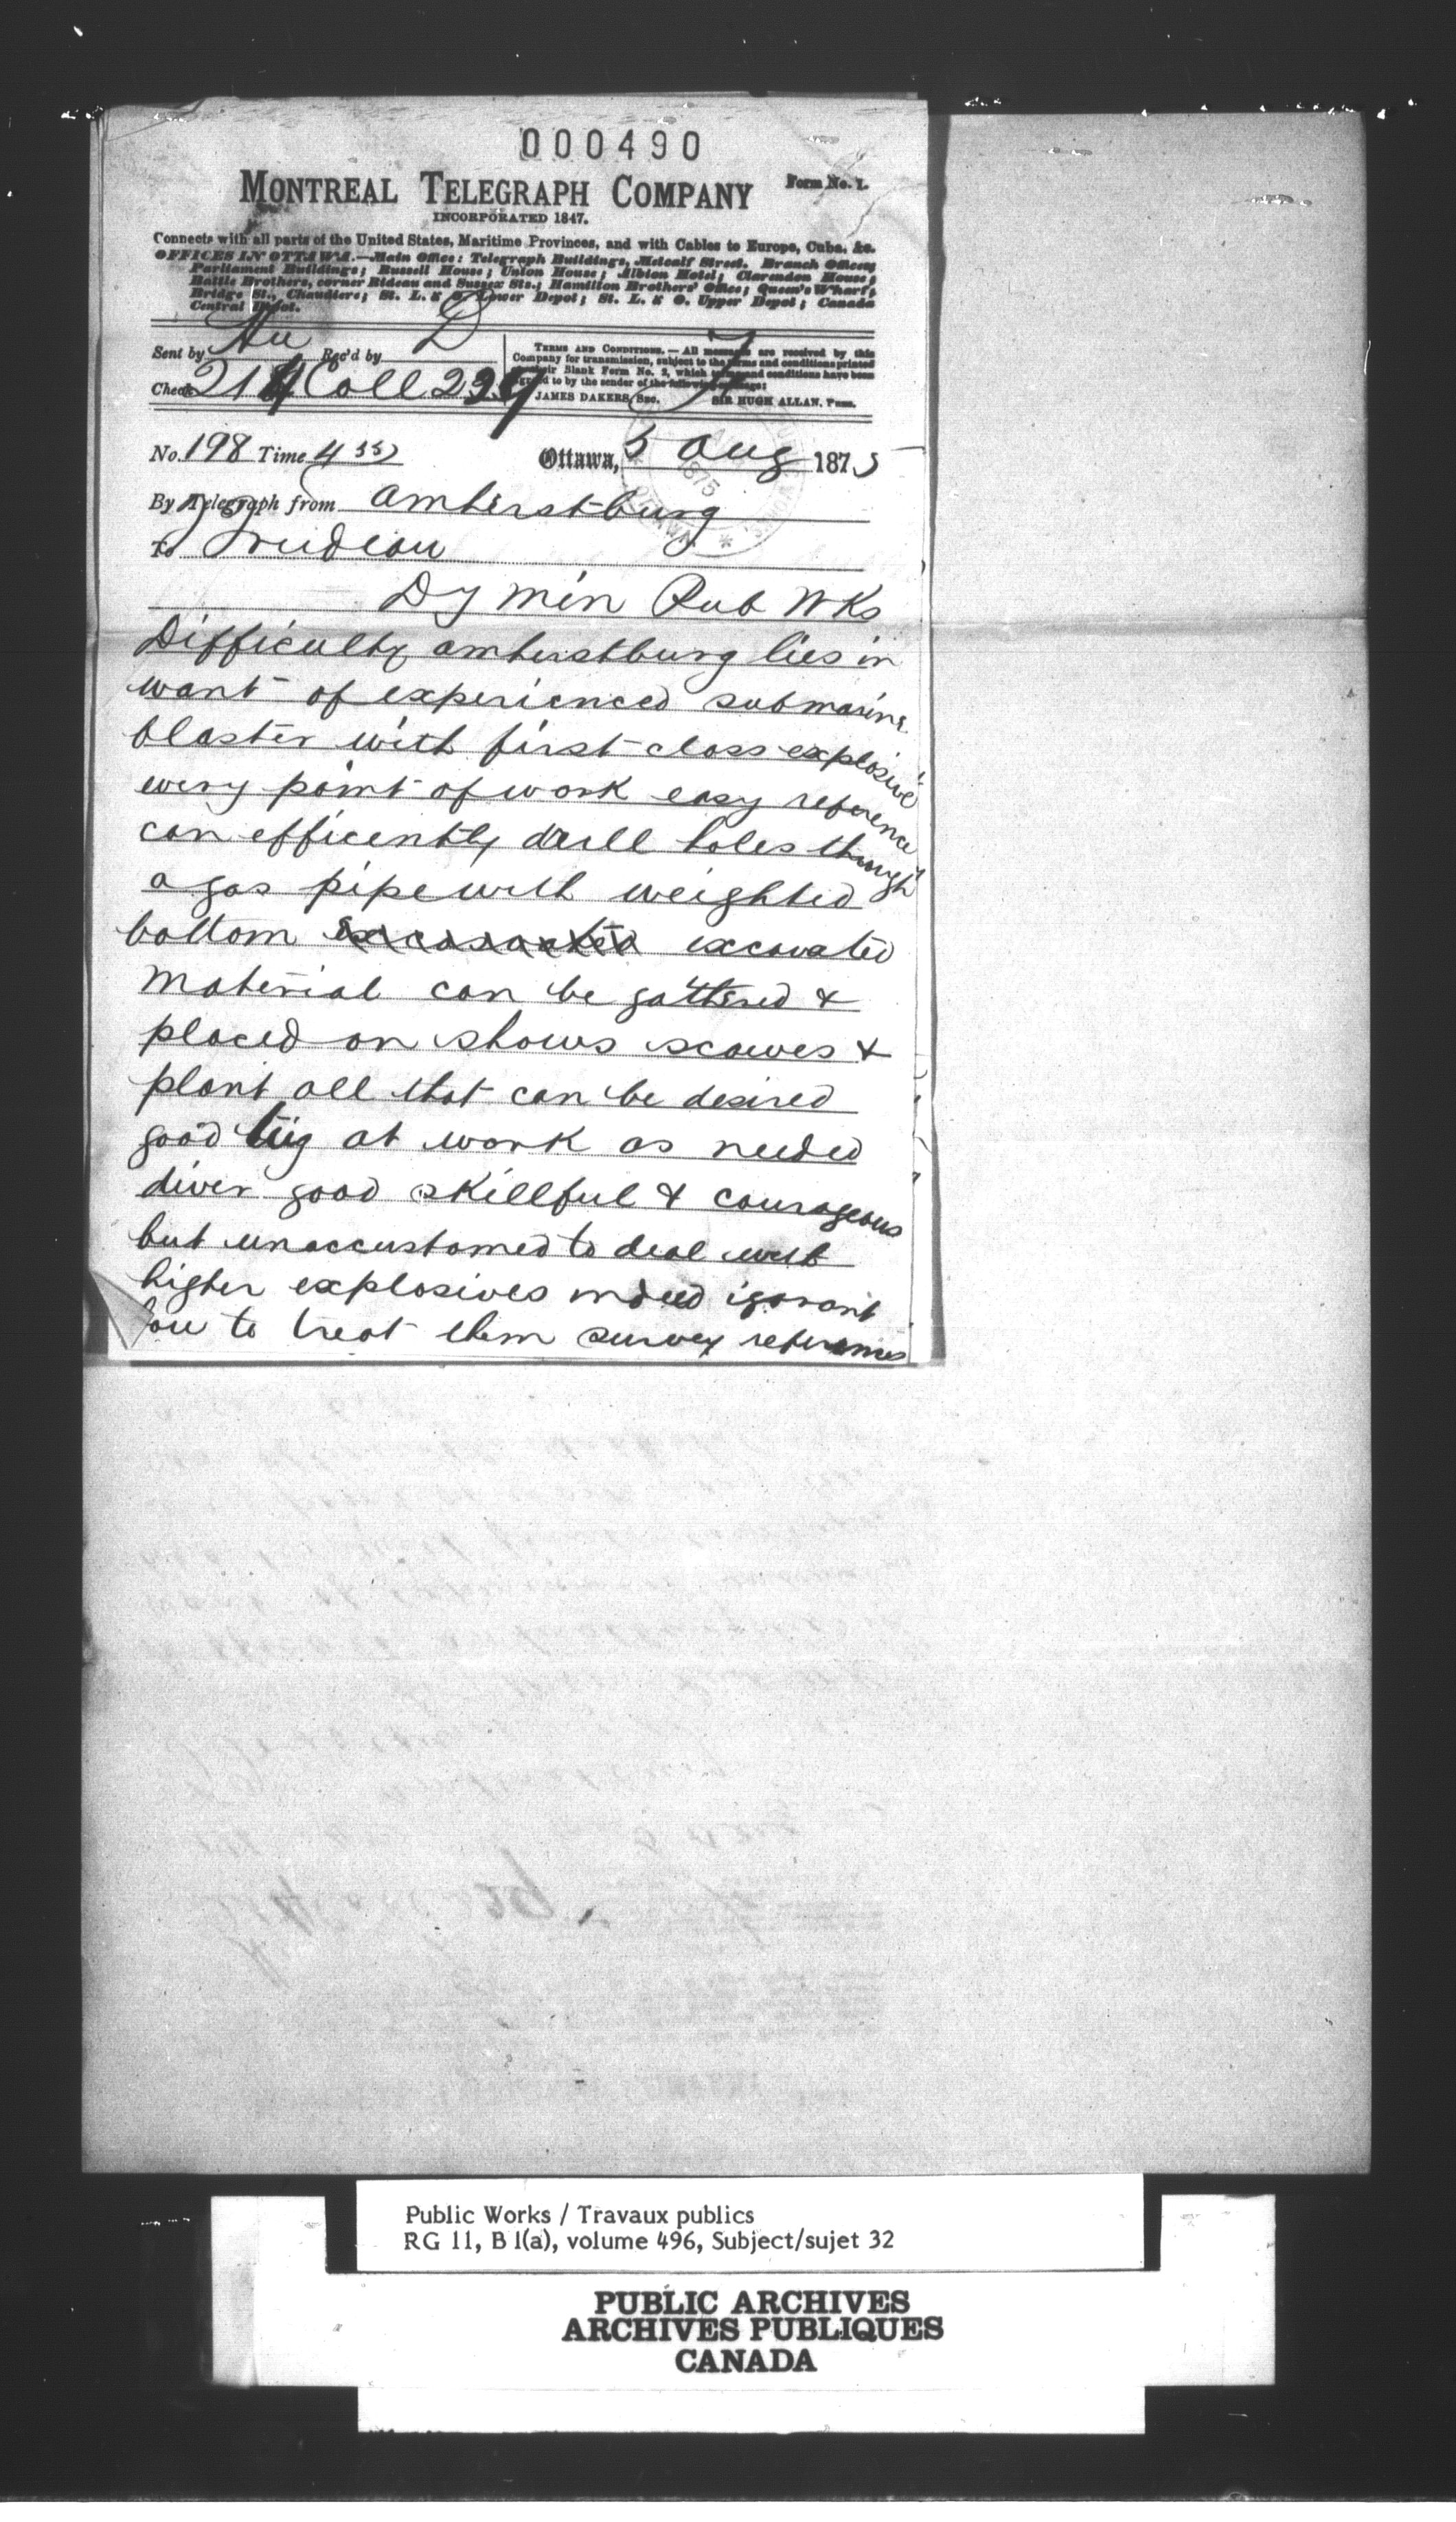 000490
MONTREAL TELEGRAPH COMPANY
Form No. 1.
INCORPORATED 1847.
Connects with all parts of the United States, Maritime Provinces, and with Cables to Europe, Cuba, &c.
OFFICES IN OTTAWA.—Main Office: Telegraph Buildings, Metcalf Street. Branch Offices
Parliament Buildings; Russell House; Union House; Albion Hotel; Clarendon House;
Battle Brothers, corner Rideau and Sussex Sts.; Hamilton Brothers' Office; Queen's Wharf;
Bridge St., Chaudiere; St. L. & O. Lower Depot; St. L. & O. Upper Depot; Canada
Central Depot.
Sent by Hu Rec'd by D
Check 214 Coll 239
TERMS AND CONDITIONS.—All messages are received by this
Company for transmission, subject to the terms and conditions printed
on their Blank Form No. 2, which terms and conditions have been
agreed to by the sender of the following message:
JAMES DAKERS, Sec. SIR HUGH ALLAN, Pres.
No. 198 Time 4 35
Ottawa, 5 Aug 1875
By Telegraph from Amherstburg
To Trudeau
Dy Min Pub Wks
Difficulty amherstburg lies in
want of experienced submarine
blaster with first class explosive
every point of work easy reference
can efficently drill holes through
a gas pipe with weighted
bottom excavated
material can be gatthered &
placed on shows scowes &
plant all that can be desired
good tug at work as needed
diver good skillful & courageous
but unaccustomed to deal with
higher explosives indeed igorant
how to treat them survey references
Public Works / Travaux publics
RG 11, B 1(a), volume 496, Subject/sujet 32
PUBLIC ARCHIVES
ARCHIVES PUBLIQUES
CANADA